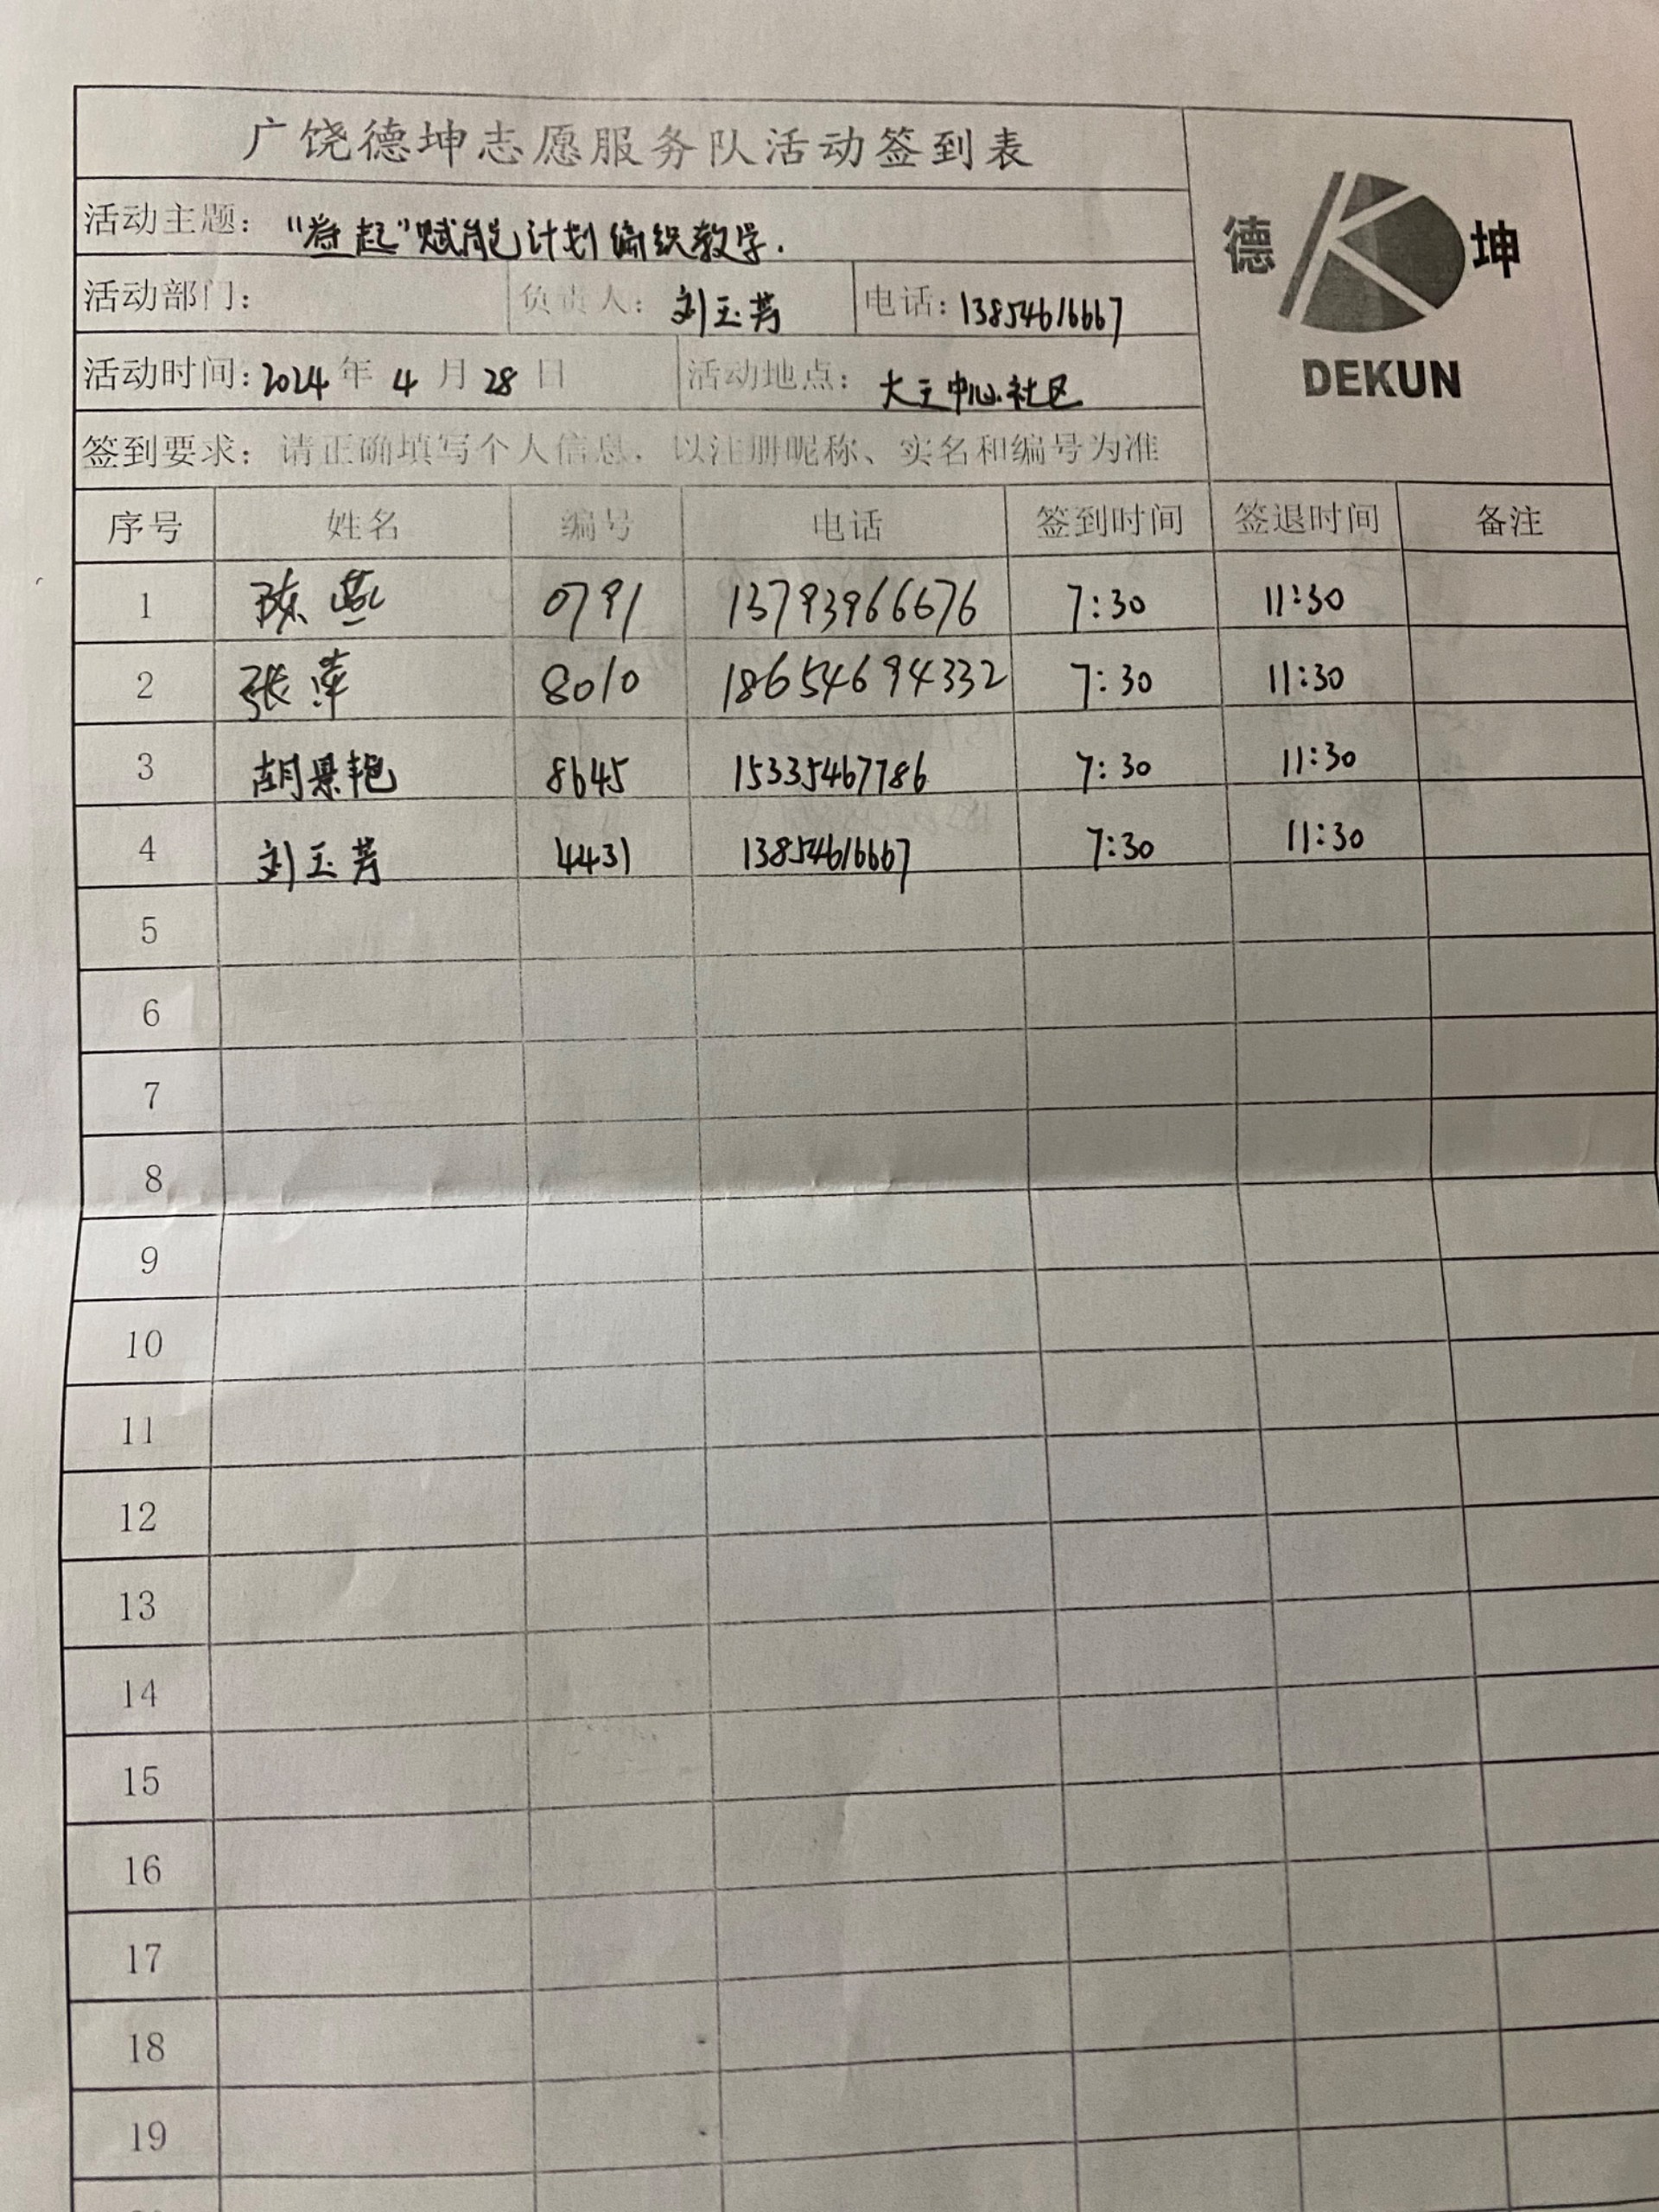 广饶德坤志愿服务队活动签到表
德 坤
DEKUN
活动主题："益起"赋能计划编织教学.
活动部门： 负责人：刘玉芳 电话：13854616667
活动时间：2024年4月28日 活动地点：大王中心社区
签到要求：请正确填写个人信息，以注册昵称、实名和编号为准
序号 姓名 编号 电话 签到时间 签退时间 备注
1 陈燕 0791 13793966676 7:30 11:30
2 张萍 8010 18654694332 7:30 11:30
3 胡景艳 8645 15335467786 7:30 11:30
4 刘玉芳 4431 13854616667 7:30 11:30
5
6
7
8
9
10
11
12
13
14
15
16
17
18
19